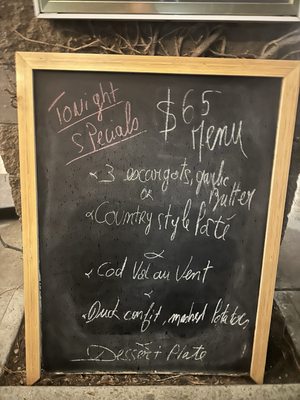 Tonight
Specials
$65
Menu
3 escargots, garlic
Butter
or
Country style Paté
or
Cod Vol au Vent
or
Duck confit, mashed Potatoes
Dessert Plate